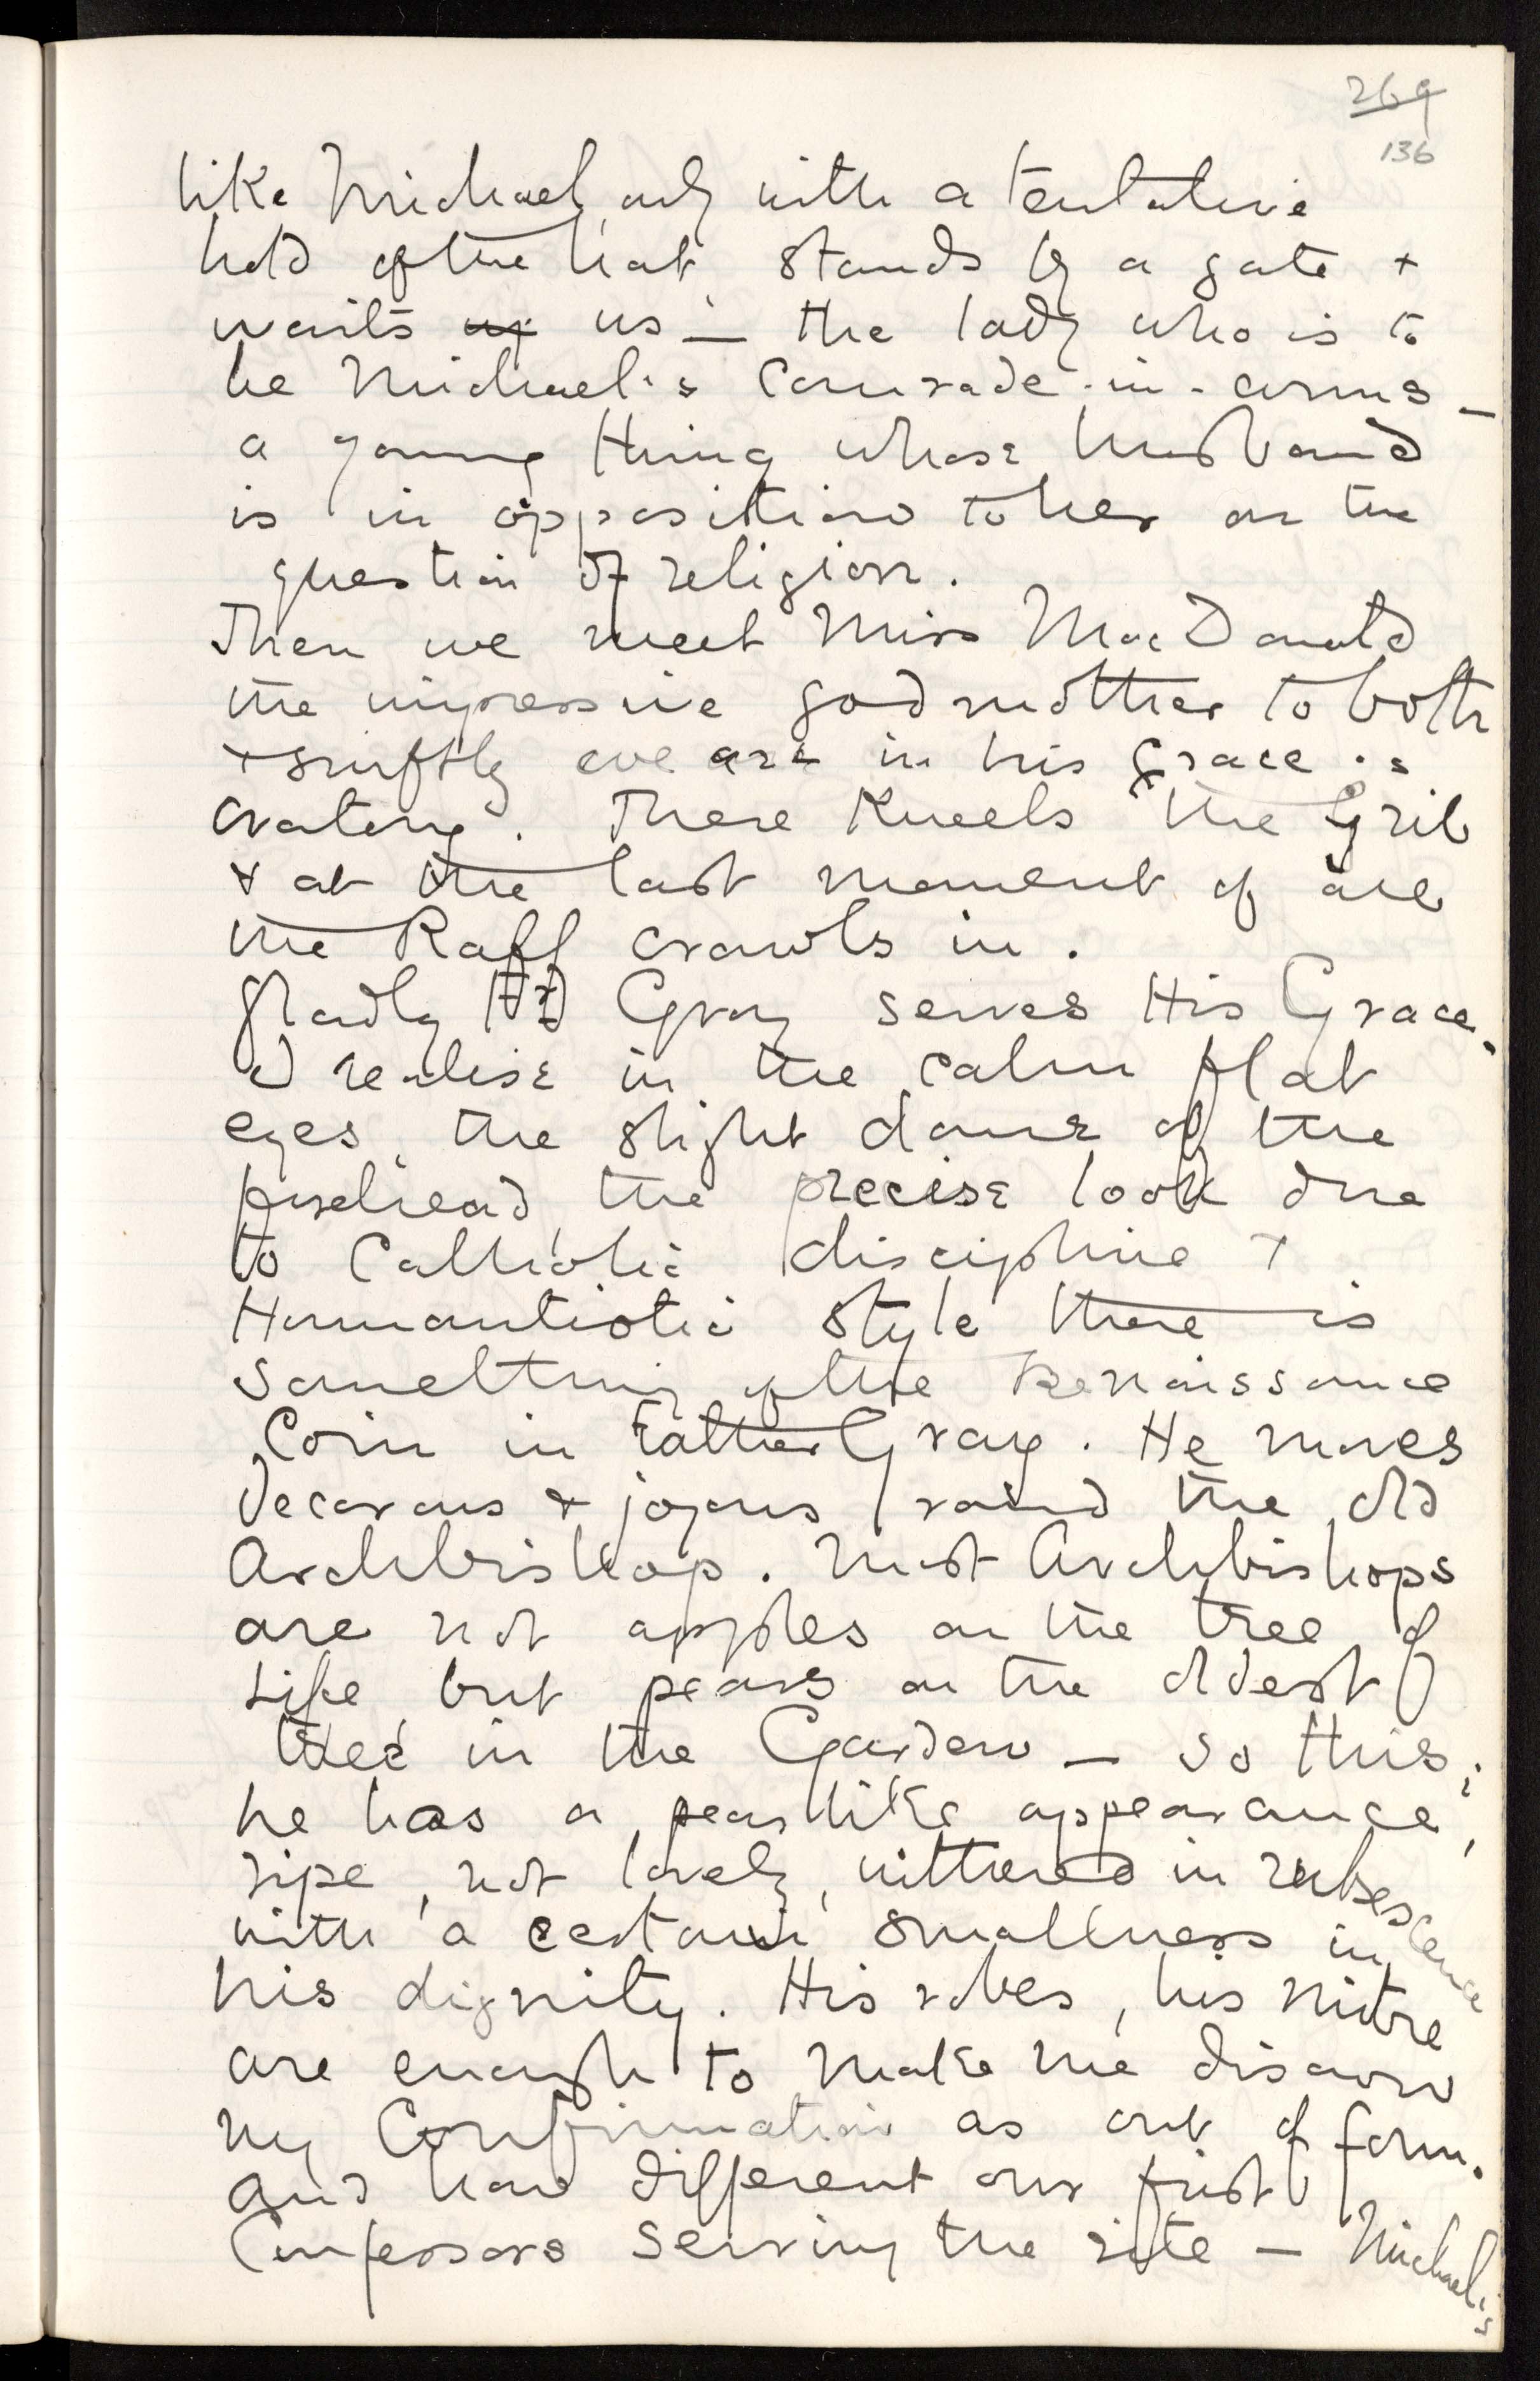 269
136
like Michael, only with a tentative
hold of the hat stands by a gate +
waits us — the lady who is to
be Michael's Comrade-in-arms —
a young thing whose husband
is in opposition to her on the
question of religion.
Then we meet Miss MacDonald
the impressive godmother to both
+ swiftly we are in his Grace's
oratory. There kneels the Gril
& at the last moment of all
the Raff crawls in.
Gladly Fr Gray serves His Grace.
I realise in the calm flat
eyes, the slight dome of the
forehead, the precise look due
to Catholic discipline +
Humantistic style there is
something of the Renaissance
Coin in Father Gray. He moves
decorous & joyous round the old
Archbishop. Most Archbishops
are not apples on the tree of
Life but pears on the oldest
tree in the Garden — so this;
he has a pearlike appearance,
ripe, not lovely, withered in rubescence
with a certain smallness in
his dignity. His robes, his mitre
are enough to make me disown
my Confirmation as out of form.
And how different our first
Confessors serving the rite — Michael's